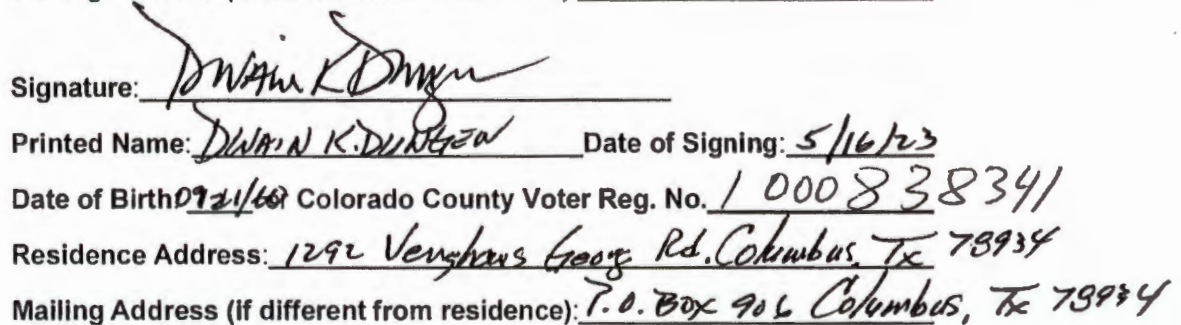 Signature: Dwain K Dungen
Printed Name: DWAIN K. DUNGEN Date of Signing: 5/16/23
Date of Birth Colorado County Voter Reg. No. 1000838341
Residence Address: 1292 Venghaus Georg Rd. Columbus, Tx 78934
Mailing Address (if different from residence): P.O. Box 906 Columbus, Tx 78934